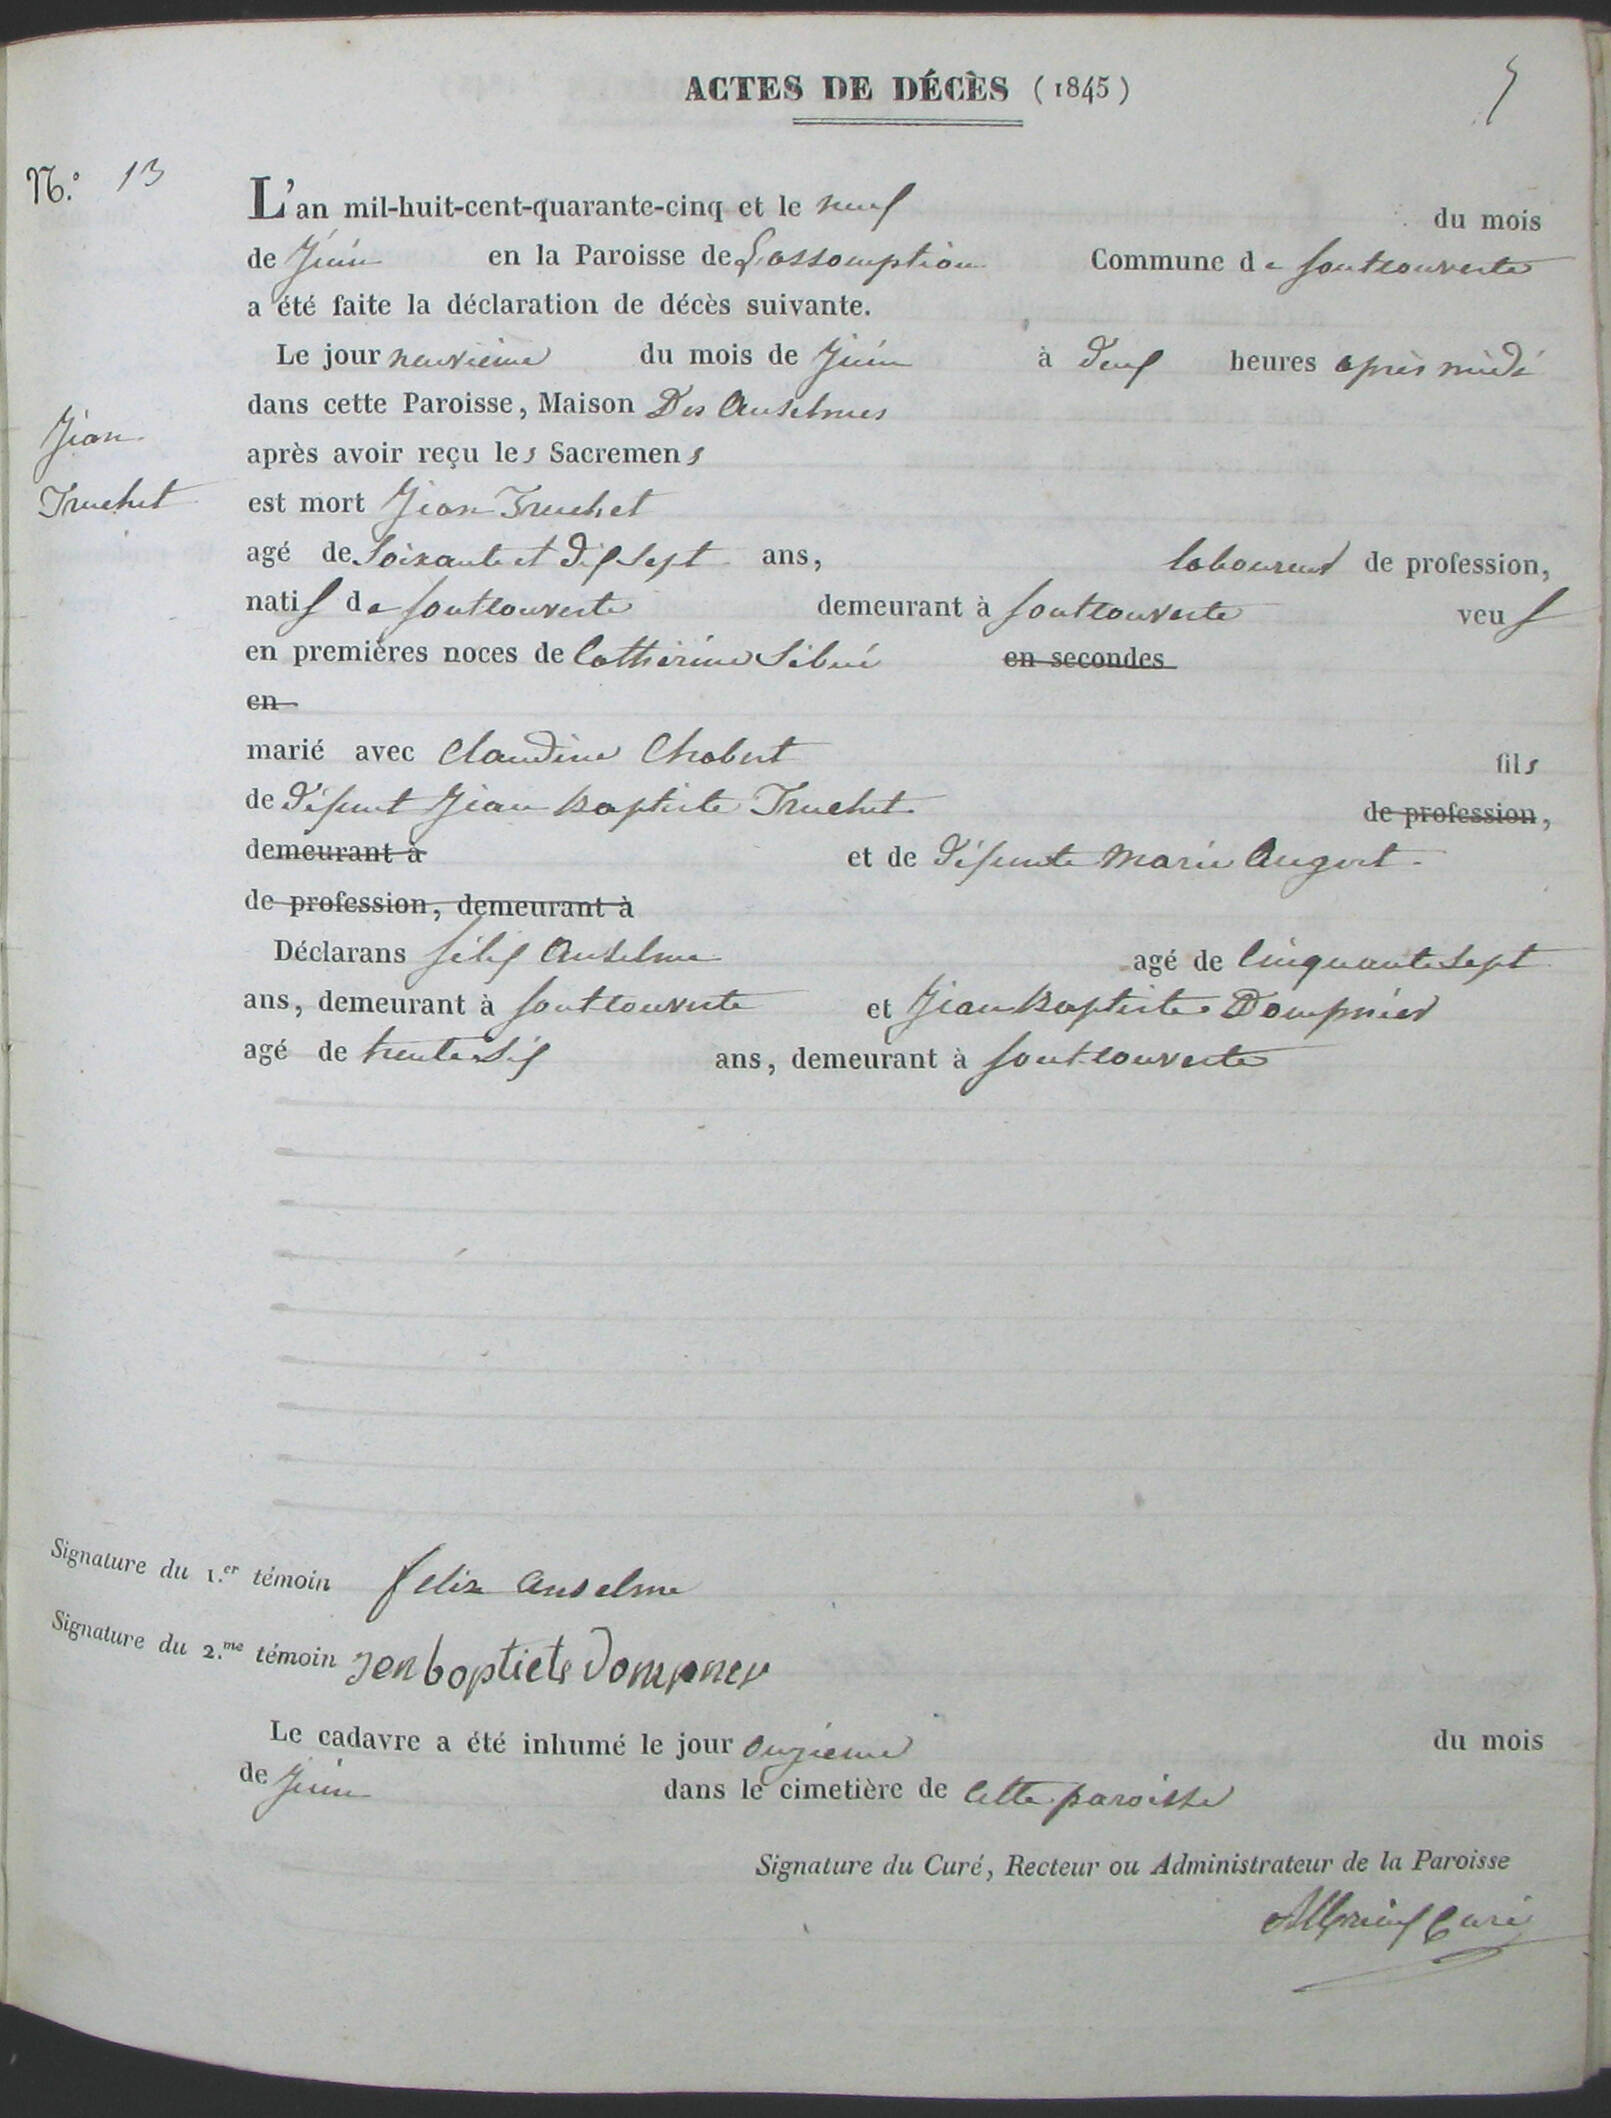 ACTES DE DÉCÈS (1845)
5
N.° 13
L'an mil-huit-cent-quarante-cinq et le neuf du mois
de Juin en la Paroisse de L'assomption Commune de fontcouverte
a été faite la déclaration de décès suivante.
Le jour neuvieme du mois de Juin à deux heures après midi
dans cette Paroisse, Maison Des Anselmes
après avoir reçu les Sacremens
Jean
Truchet
est mort Jean Truchet
agé de soixante et dix sept ans, laboureur de profession,
natif de fontcouverte demeurant à fontcouverte veuf
en premières noces de Catherine Sibué en secondes
en
marié avec Claudine Chabert fils
de défunt Jean Baptiste Truchet de profession,
demeurant à et de défunte Marie Augert
de profession, demeurant à
Déclarans félix Anselme agé de Cinquante Sept
ans, demeurant à fontcouverte et Jean Baptiste Dompnier
agé de trente six ans, demeurant à fontcouverte
Signature du 1.er témoin felix anselme
Signature du 2.me témoin Jenboptiete Dompner
Le cadavre a été inhumé le jour onzieme du mois
de Juin dans le cimetière de cette paroisse
Signature du Curé, Recteur ou Administrateur de la Paroisse
Curé